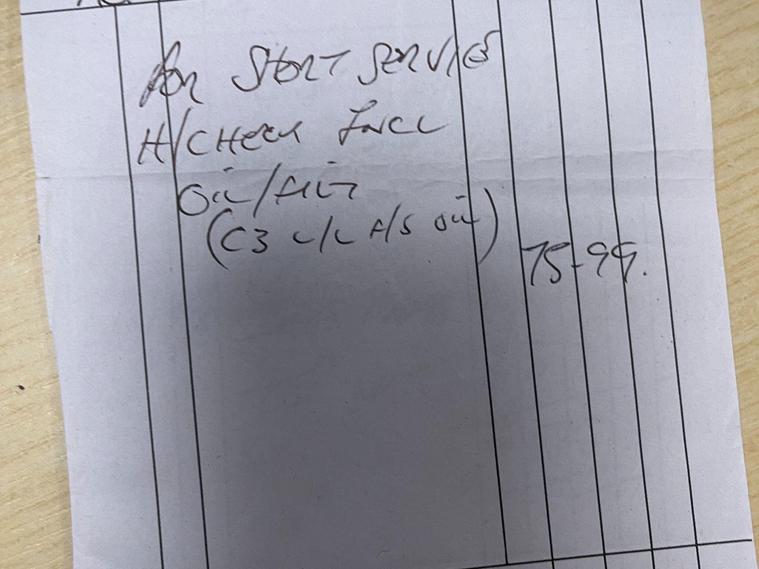 For Short Service
H/Check Incl
Oil/Filt
(C3 L/L F/S Oil)
75-99.